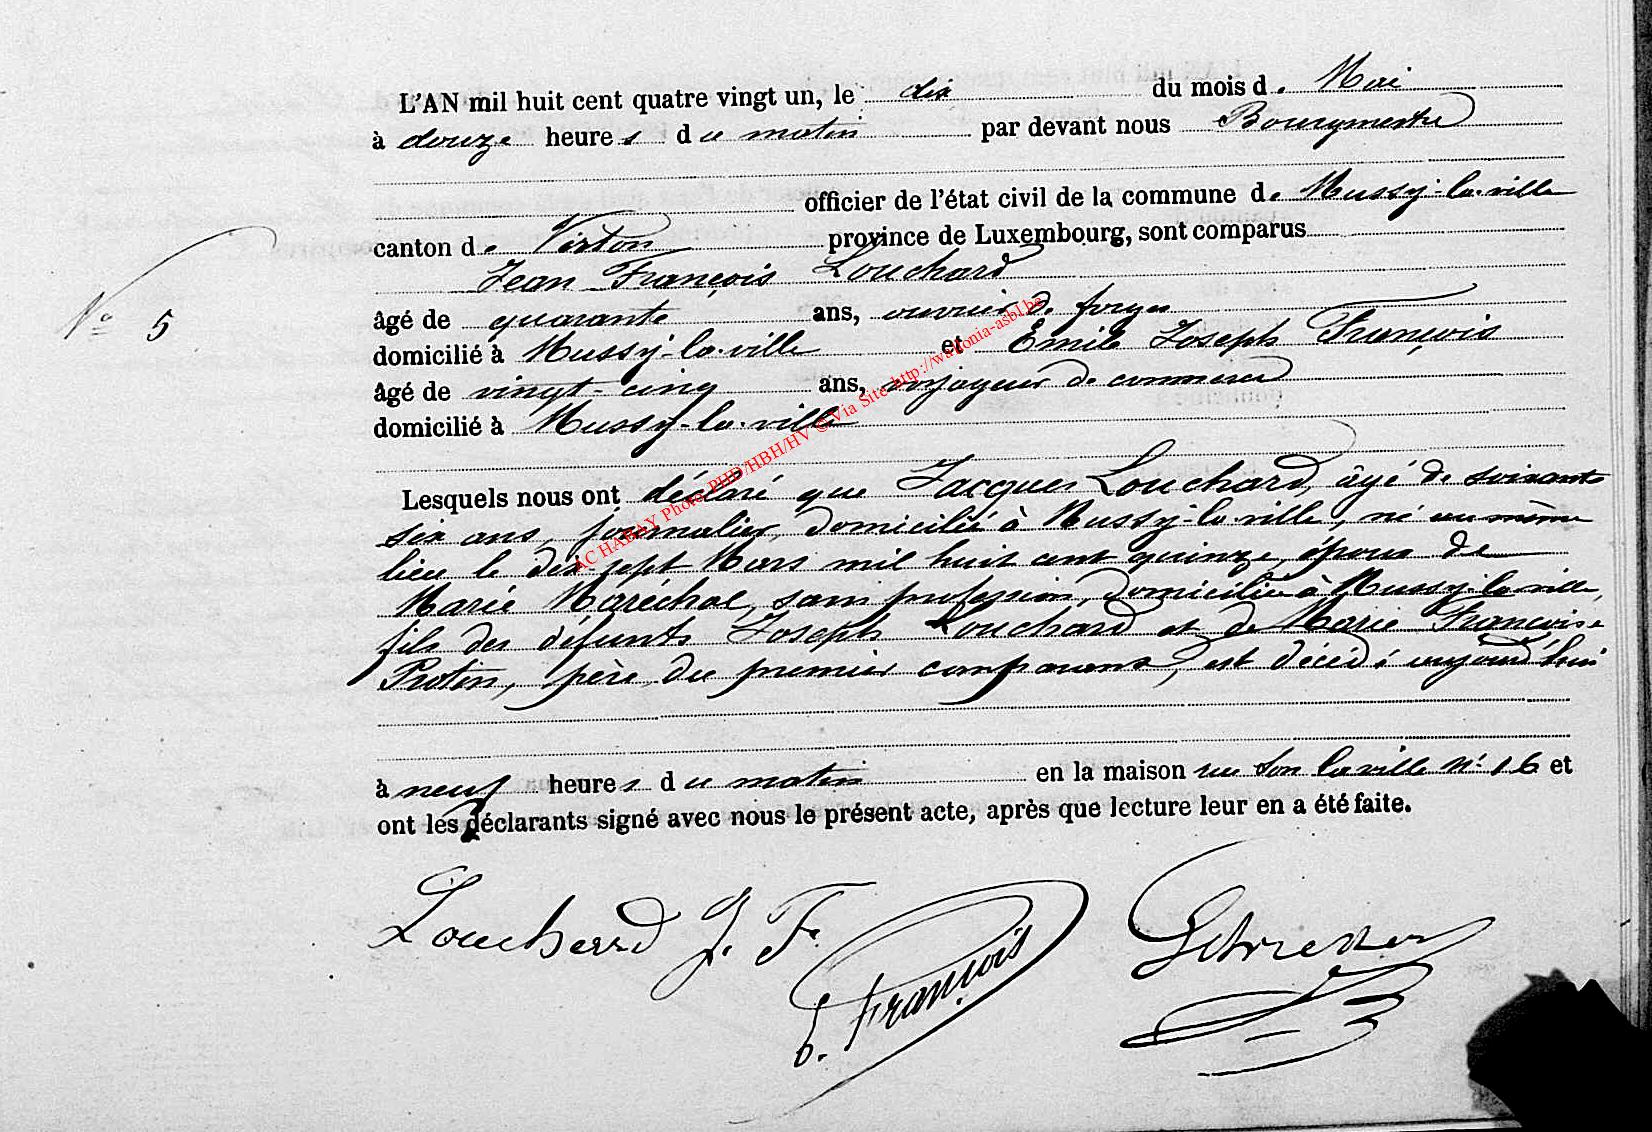 L'AN mil huit cent quatre vingt un, le dix du mois de Mai
à douze heures du matin par devant nous Bourgmestre
officier de l'état civil de la commune de Mussy-la-ville
canton de Virton province de Luxembourg, sont comparus
Jean François Louchard
N° 5
âgé de quarante ans, ouvrier de forges
domicilié à Mussy-la-ville et Emile Joseph François
âgé de vingt-cinq ans, voyageur de commerce
domicilié à Mussy-la-ville
Lesquels nous ont déclaré que Jacques Louchard, âgé de soixante
six ans, journalier, domicilié à Mussy-la-ville, né au même
lieu le dix-sept Mars mil huit cent quinze, époux de
Marie Maréchal, sans profession, domiciliée à Mussy-la-ville,
fils des défunts Joseph Louchard et de Marie Françoise
Protin, père du premier comparant, est décédé aujourd'hui
à neuf heures du matin en la maison rue la ville n° 16 et
ont les déclarants signé avec nous le présent acte, après que lecture leur en a été faite.
Louchard J. F.
E. François
AC HABAY Photo PHD/HBH/HV © Via Site http://wallonia-asbl.be